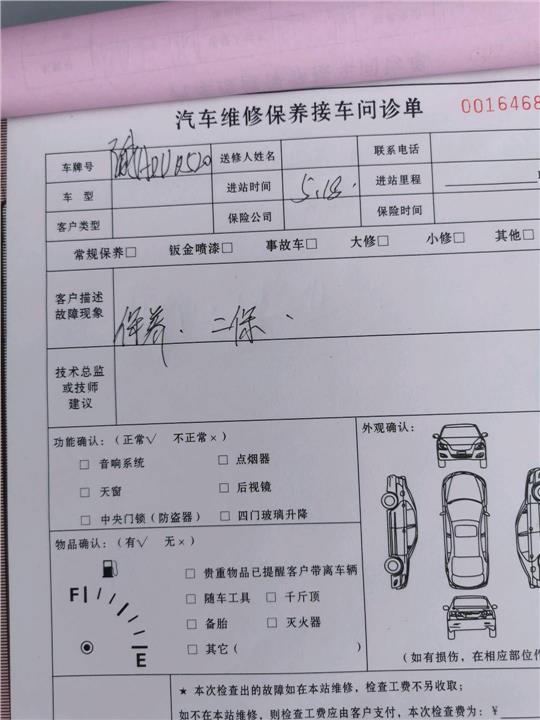 汽车维修保养接车问诊单 0016468
车牌号 送修人姓名 联系电话
车 型 进站时间 5.18. 进站里程
客户类型 保险公司 保险时间
常规保养□ 钣金喷漆□ 事故车□ 大修□ 小修□ 其他□
客户描述
故障现象
保养、二保、
技术总监
或技师
建议
功能确认：（正常√ 不正常×）
□ 音响系统 □ 点烟器
□ 天窗 □ 后视镜
□ 中央门锁（防盗器） □ 四门玻璃升降
外观确认：
物品确认：（有√ 无×）
F E
□ 贵重物品已提醒客户带离车辆
□ 随车工具 □ 千斤顶
□ 备胎 □ 灭火器
□ 其它（ ）
（如有损伤，在相应部位作
★ 本次检查出的故障如在本站维修，检查工费不另收取；
如不在本站维修，则检查工费应由客户支付，本次检查费为：￥